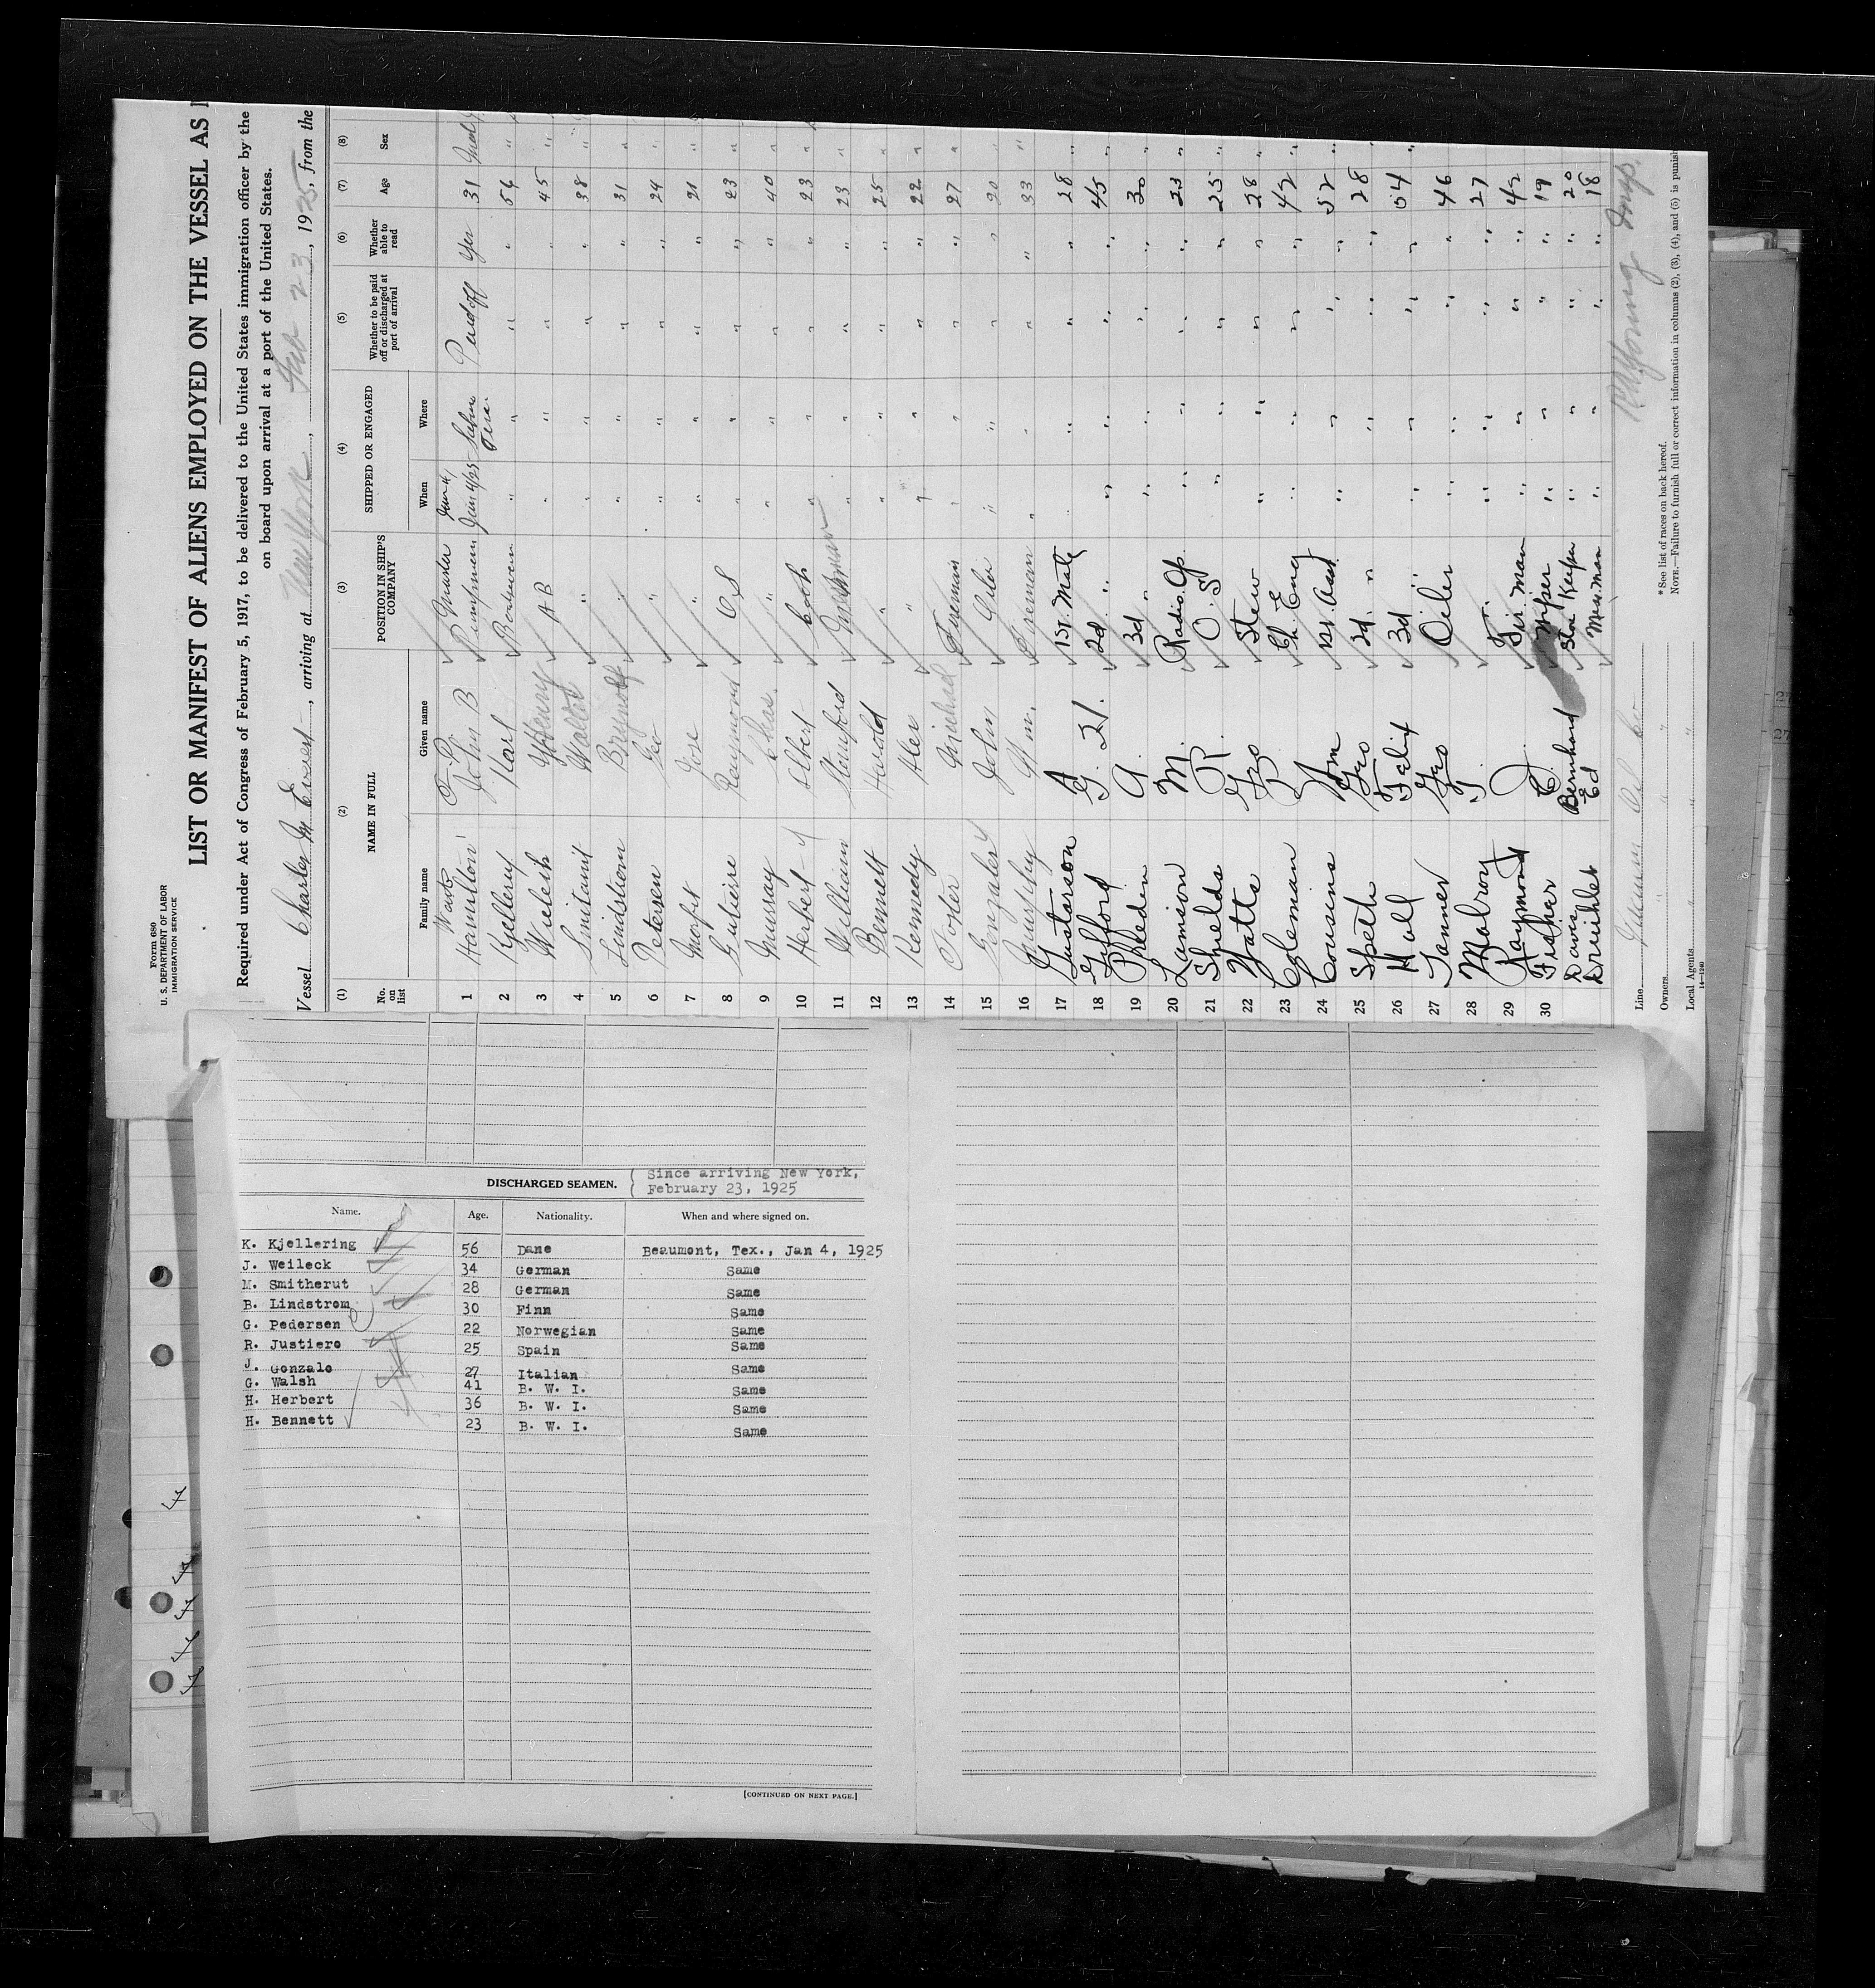 Form 680
U. S. DEPARTMENT OF LABOR
IMMIGRATION SERVICE
LIST OR MANIFEST OF ALIENS EMPLOYED ON THE VESSEL AS
Required under Act of Congress of February 5, 1917, to be delivered to the United States immigration officer by the
on board upon arrival at a port of the United States.
Vessel Charles M Everest, arriving at New York, Feb 23, 1925, from the
(1) (2) (3) (4) (5) (6) (7) (8)
No. on list NAME IN FULL POSITION IN SHIP'S COMPANY SHIPPED OR ENGAGED Whether to be paid off or discharged at port of arrival Whether able to read Age Sex
Family name Given name When Where
1 Hamilton John B Pumpman Jan 4/25 Yes 31
2 Kjellerup Karl " " " " 56 "
3 Henry A B " " " " 45 "
4 " " " " " 38 "
5 Lindstrom " " " " " 31 "
6 Petersen Geo " " " " " 24 "
7 Jose " " " " " 21 "
8 Gutierre Raymond O S " " " " 23 "
9 Murray Chas. " " " " " 40 "
10 Herbert Elbert Cook " " " " 23 "
11 William Stanford Messman " " " " 23 "
12 Bennett Harold " " " " " 25 "
13 Kennedy Alex " " " " " 22 "
14 Foster Michael Fireman " " " " 27 "
15 Gonzales John Oiler " " " " 20 "
16 Murphy Wm. Fireman " " " " 33 "
17 Gustarson A 1st. Mate " " " 28 "
18 Gifford G. H. 2d " " " " " 45 "
19 Phleden A. 3d " " " " " 30 "
20 Lamison M. Radio Op. " " " " 23 "
21 Shields R. O. S " " " " 25 "
22 Watts Geo Stew " " " " 28 "
23 Coleman Ch. Eng " " " " 42 "
24 Cousins Wm 1st. Asst " " " " 52 "
25 Speth Geo 2d " " " " 28 "
26 Hall Falix 3d " " " " " 54 "
27 Tanner Geo Oiler " " " " 46
28 Mabroy T. " " " " 27
29 Raymond J Fir. man " " " " 42
30 Fisher C. Wiper " " " " 19
Davis Bernhard Stor Keeper " " " " 20
Dreihler Ed Mess. Man " " " " 18
Line Vacuum Oil Co
Owners " " "
Local Agents " " "
14—1240
*See list of races on back hereof.
NOTE.—Failure to furnish full or correct information in columns (2), (3), (4), and (5) is punish
DISCHARGED SEAMEN. ( Since arriving New York,
( February 23, 1925
Name. Age. Nationality. When and where signed on.
K. Kjellering 56 Dane Beaumont, Tex., Jan 4, 1925
J. Weileck 34 German Same
M. Smitherut 28 German Same
B. Lindstrom 30 Finn Same
G. Pedersen 22 Norwegian Same
R. Justiero 25 Spain Same
J. Gonzalo 27 Italian Same
G. Walsh 41 B. W. I. Same
H. Herbert 36 B. W. I. Same
H. Bennett 23 B. W. I. Same
[CONTINUED ON NEXT PAGE.]